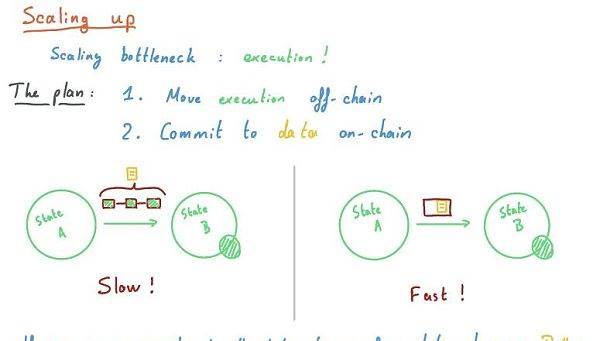 Scaling up
Scaling bottleneck : execution !
The plan : 1. Move execution off-chain
2. Commit to data on-chain
State A
State B
State A
State B
Slow !
Fast !